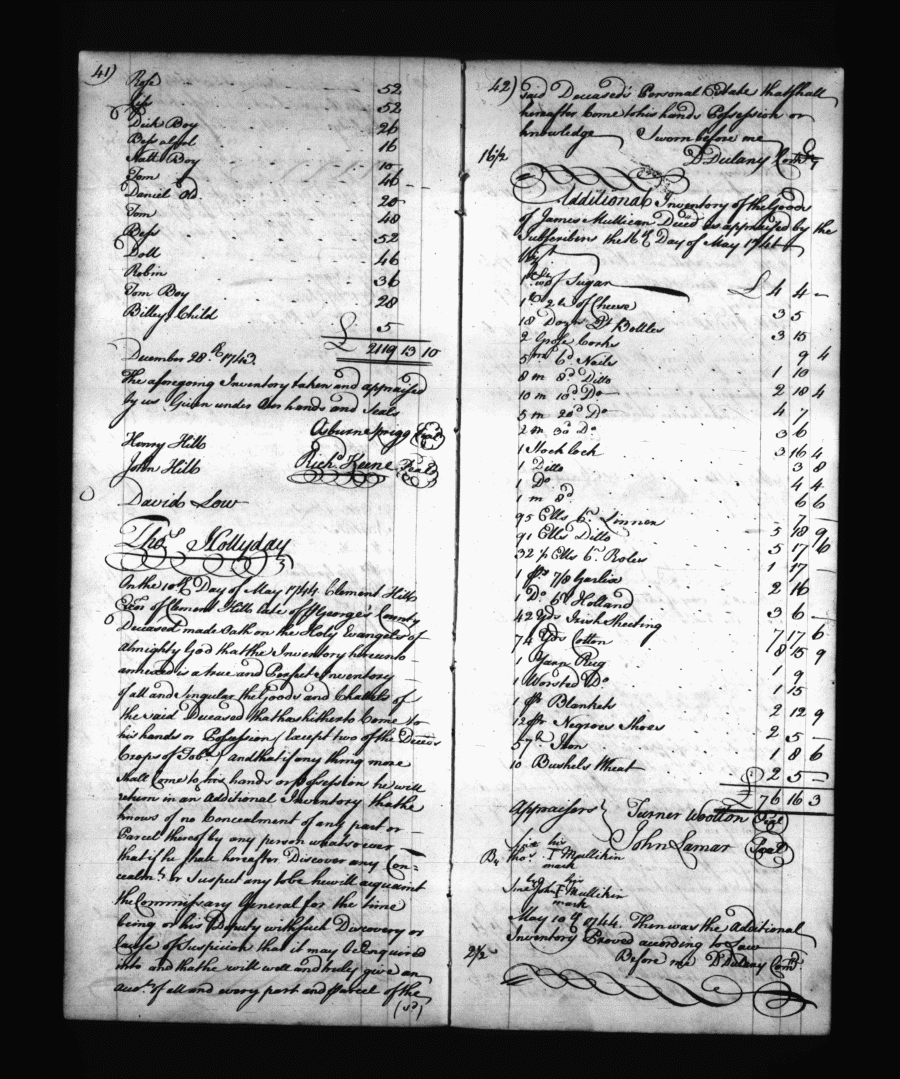 41)
Rose 52
Bess 52
Dick Boy 26
Bess a girl 16
Natt Boy 10
Tom 46
Daniel Old 20
Tom 48
Bess 52
Doll 46
Robin 36
Tom Boy 28
Billey Child 5
£ 2119 13 10
December 28th 1743.
The aforegoing Inventory taken and appraised
by us Given under our hands and Seals
Osburn Sprigg (Seal)
Henry Hill
John Hill Richd Keene (Seal)
David Low
Thos Hollyday
On the 10th Day of May 1744 Clement Hill
Exor of Clement Hill late of Pr George's County
Deceased made Oath on the Holy Evangels of
Almighty God that the Inventory hereunto
annexed is a true and Perfect Inventory
of all and Singular the Goods and Chattels of
the said Deceased that has hitherto Come to
his hands or Possession (Except two of the Deceds
Crops of Tobo) and that if any thing more
shall Come to his hands or Possession he will
return in an Additional Inventory that he
knows of no Concealment of any part or
Parcel thereof by any person whatsoever
that if he shall hereafter Discover any Con=
cealmt or Suspect any to be he will acquaint
the Commissary General for the time
being or his Deputy with such Discovery or
Cause of Suspicion that it may be Enquired
into and that he will well and truly give an
Acct of all and every part and Parcel of the
(sd)
42) said Deceased's Personal Estate that shall
hereafter Come to his hands Possession or
knowledge Sworn before me
16 1/2 D Dulany
Additional Inventory of the Goods
of James Mullican Deced as appraised by the
Subscribers the 16th Day of May 1744
of Sugar £ 4 4 —
of Cheese 3 5
18 Dozn Qt Bottles 3 15
2 Grose Corks 9 4
5m 6d Nails 1 10
8 m 8d Ditto 2 18 4
10 m 10d Do 4 7
5 m 20d Do 3 6
2 m 30d Do 3 16 4
1 Stock Lock 3 8
1 Ditto 4 4
1 Do 6 6
1 m 8d 7 —
95 Ells Linnen 5 18 9
91 Ells Ditto 5 17 6
32 1/2 Ells Roles 1 17 —
1 ps 7/8 Garlix 2 16
1 Do Holland 3 6 —
42 Yds Irish Sheeting 7 17 6
74 Yds Cotton 8 15 9
1 Yarn Rug 1 9
1 Worsted Do 1 15
1 pr Blankets 2 12 9
12 pr Negroes Shoes 2 5 —
Iron 1 8 6
10 Bushels Wheat £ 2 5 —
£ 76 16 3
Appraisers } Turner Wootton (Seal)
John Lamar (Seal)
his
Thos I Mullikin
mark
his
John I Mullikin
mark
May 10th 1744. Then was the Additional
Inventory Proved according to Law
2 1/2 Before me D Dulany